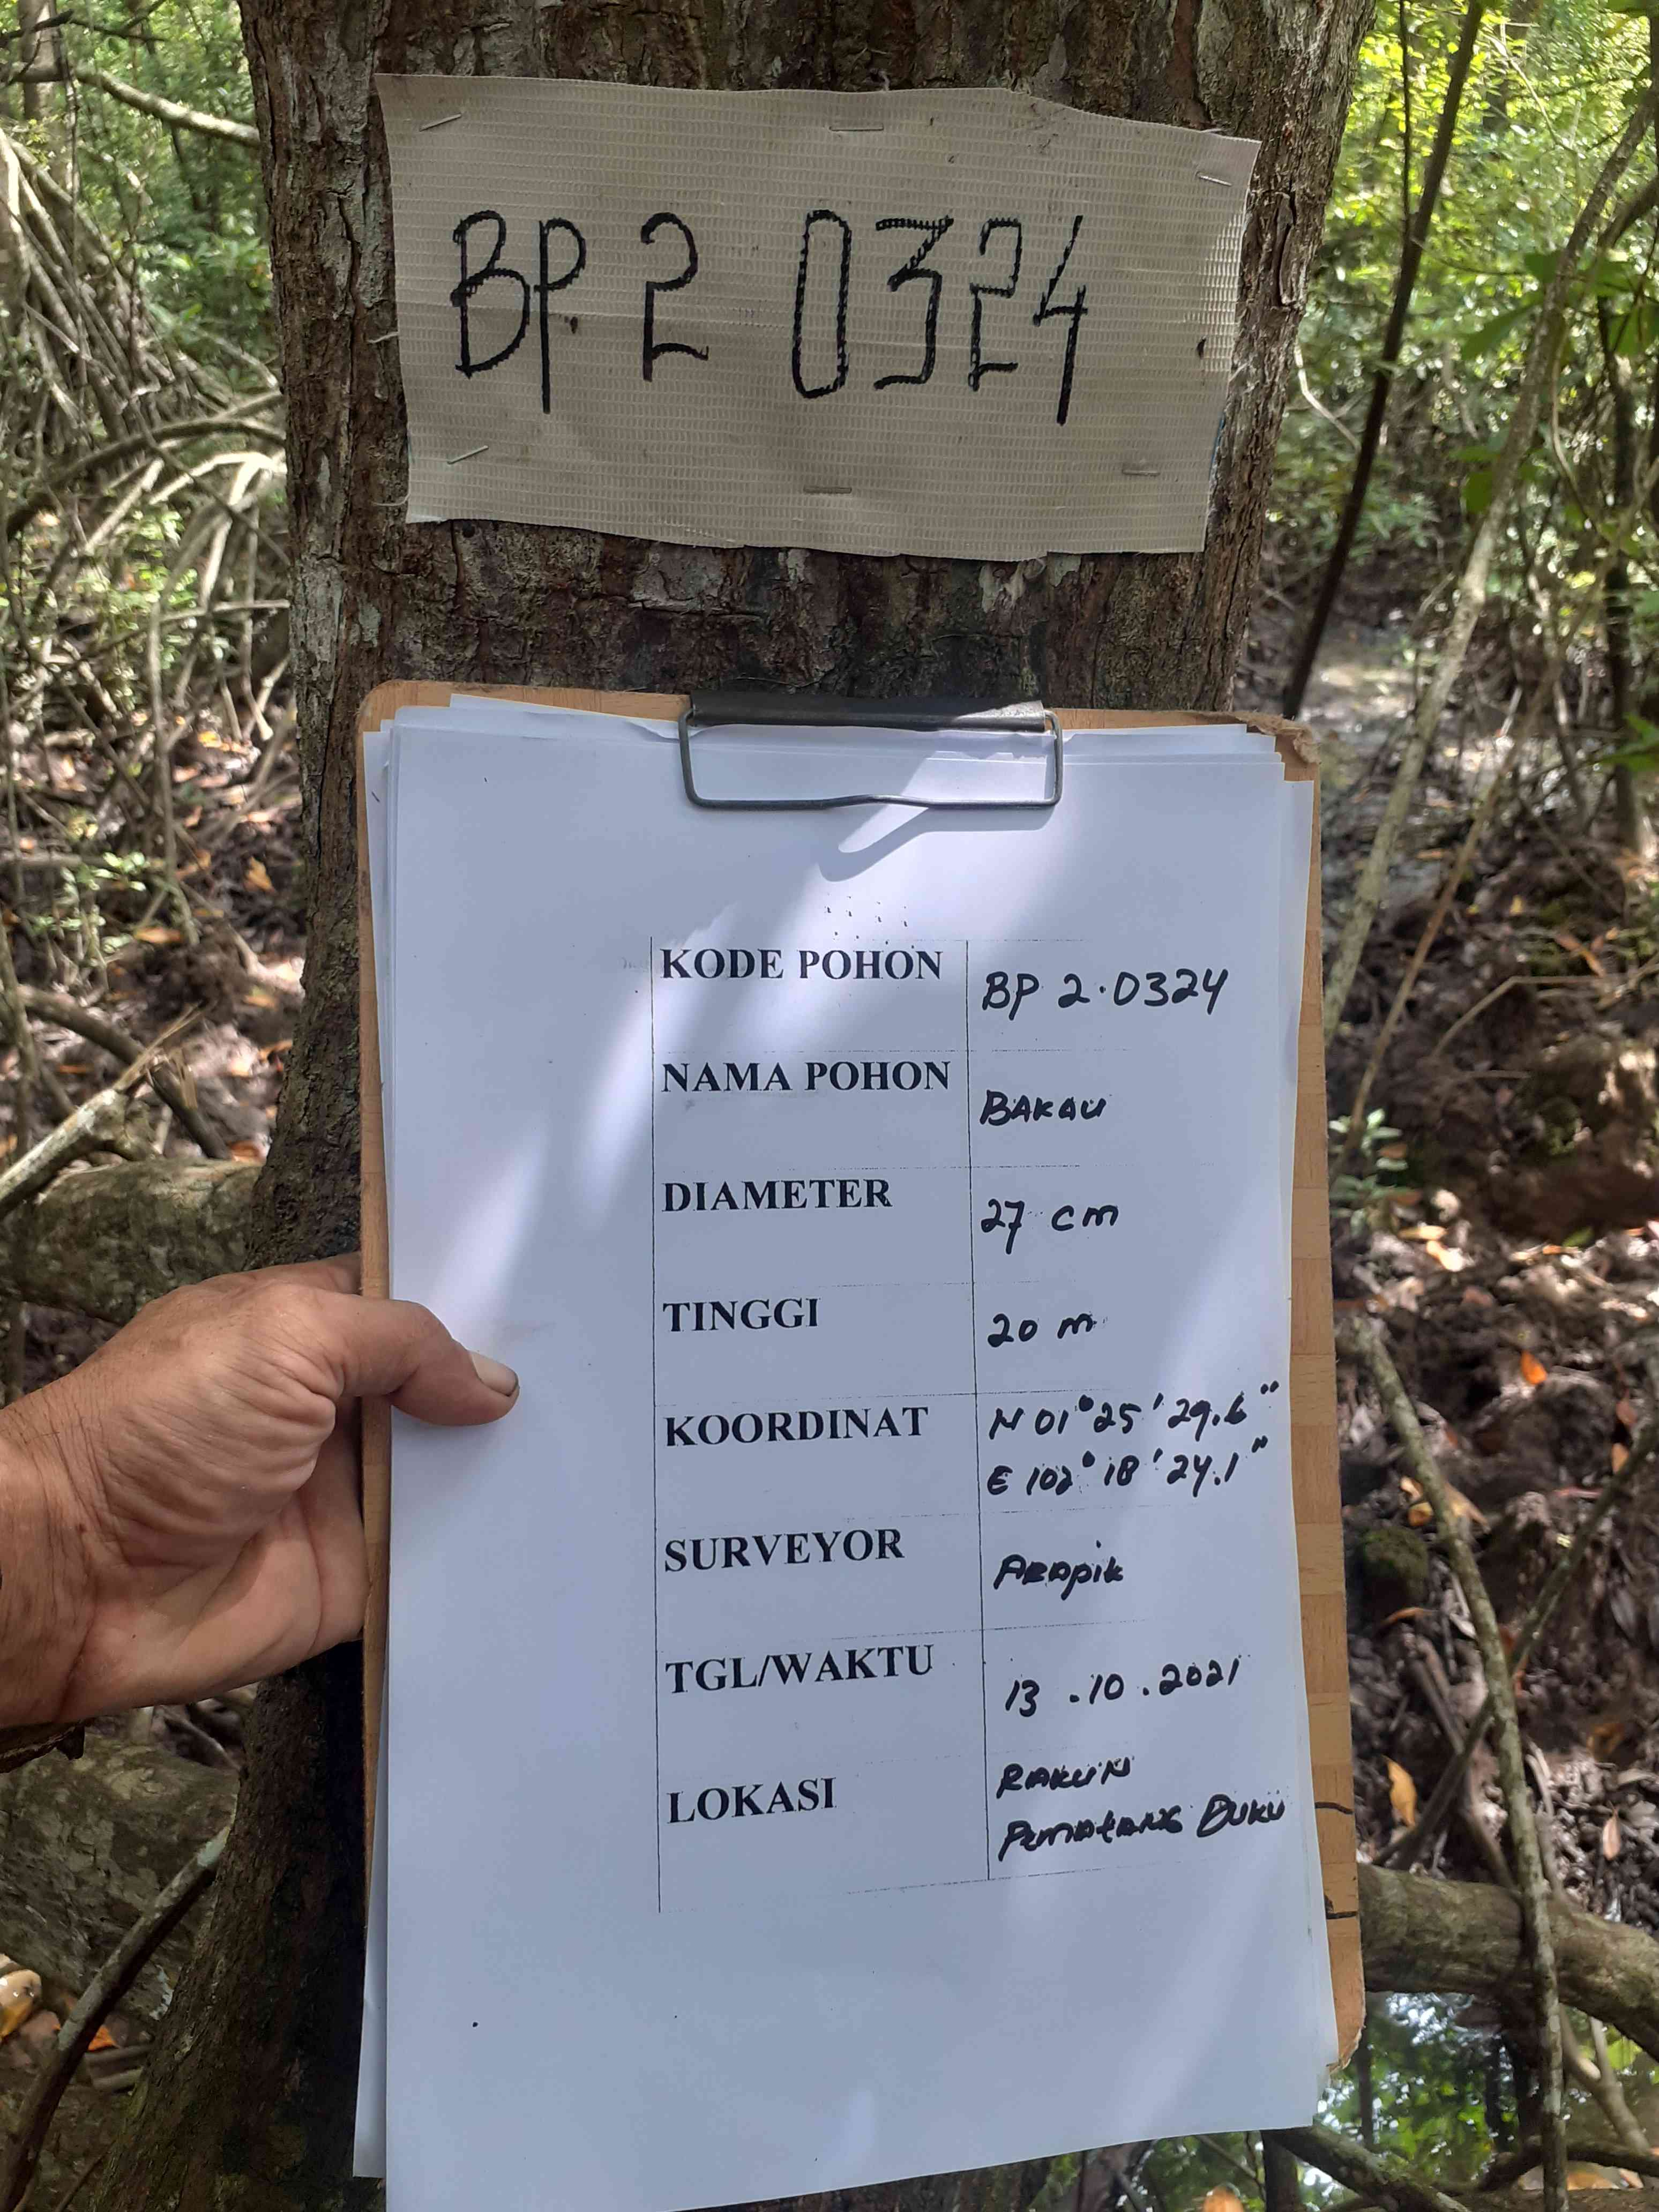 BP 2 0324
KODE POHON BP 2.0324
NAMA POHON BAKAU
DIAMETER 27 cm
TINGGI 20 m
KOORDINAT N 01° 25' 29.6"
E 102° 18' 24.1"
SURVEYOR ARApik
TGL/WAKTU 13.10.2021
LOKASI RAKUN
PEMAtANG DUKU